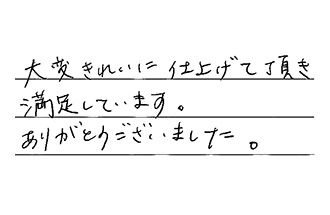 大変きれいに仕上げて頂き
満足しています。
ありがとうございました。